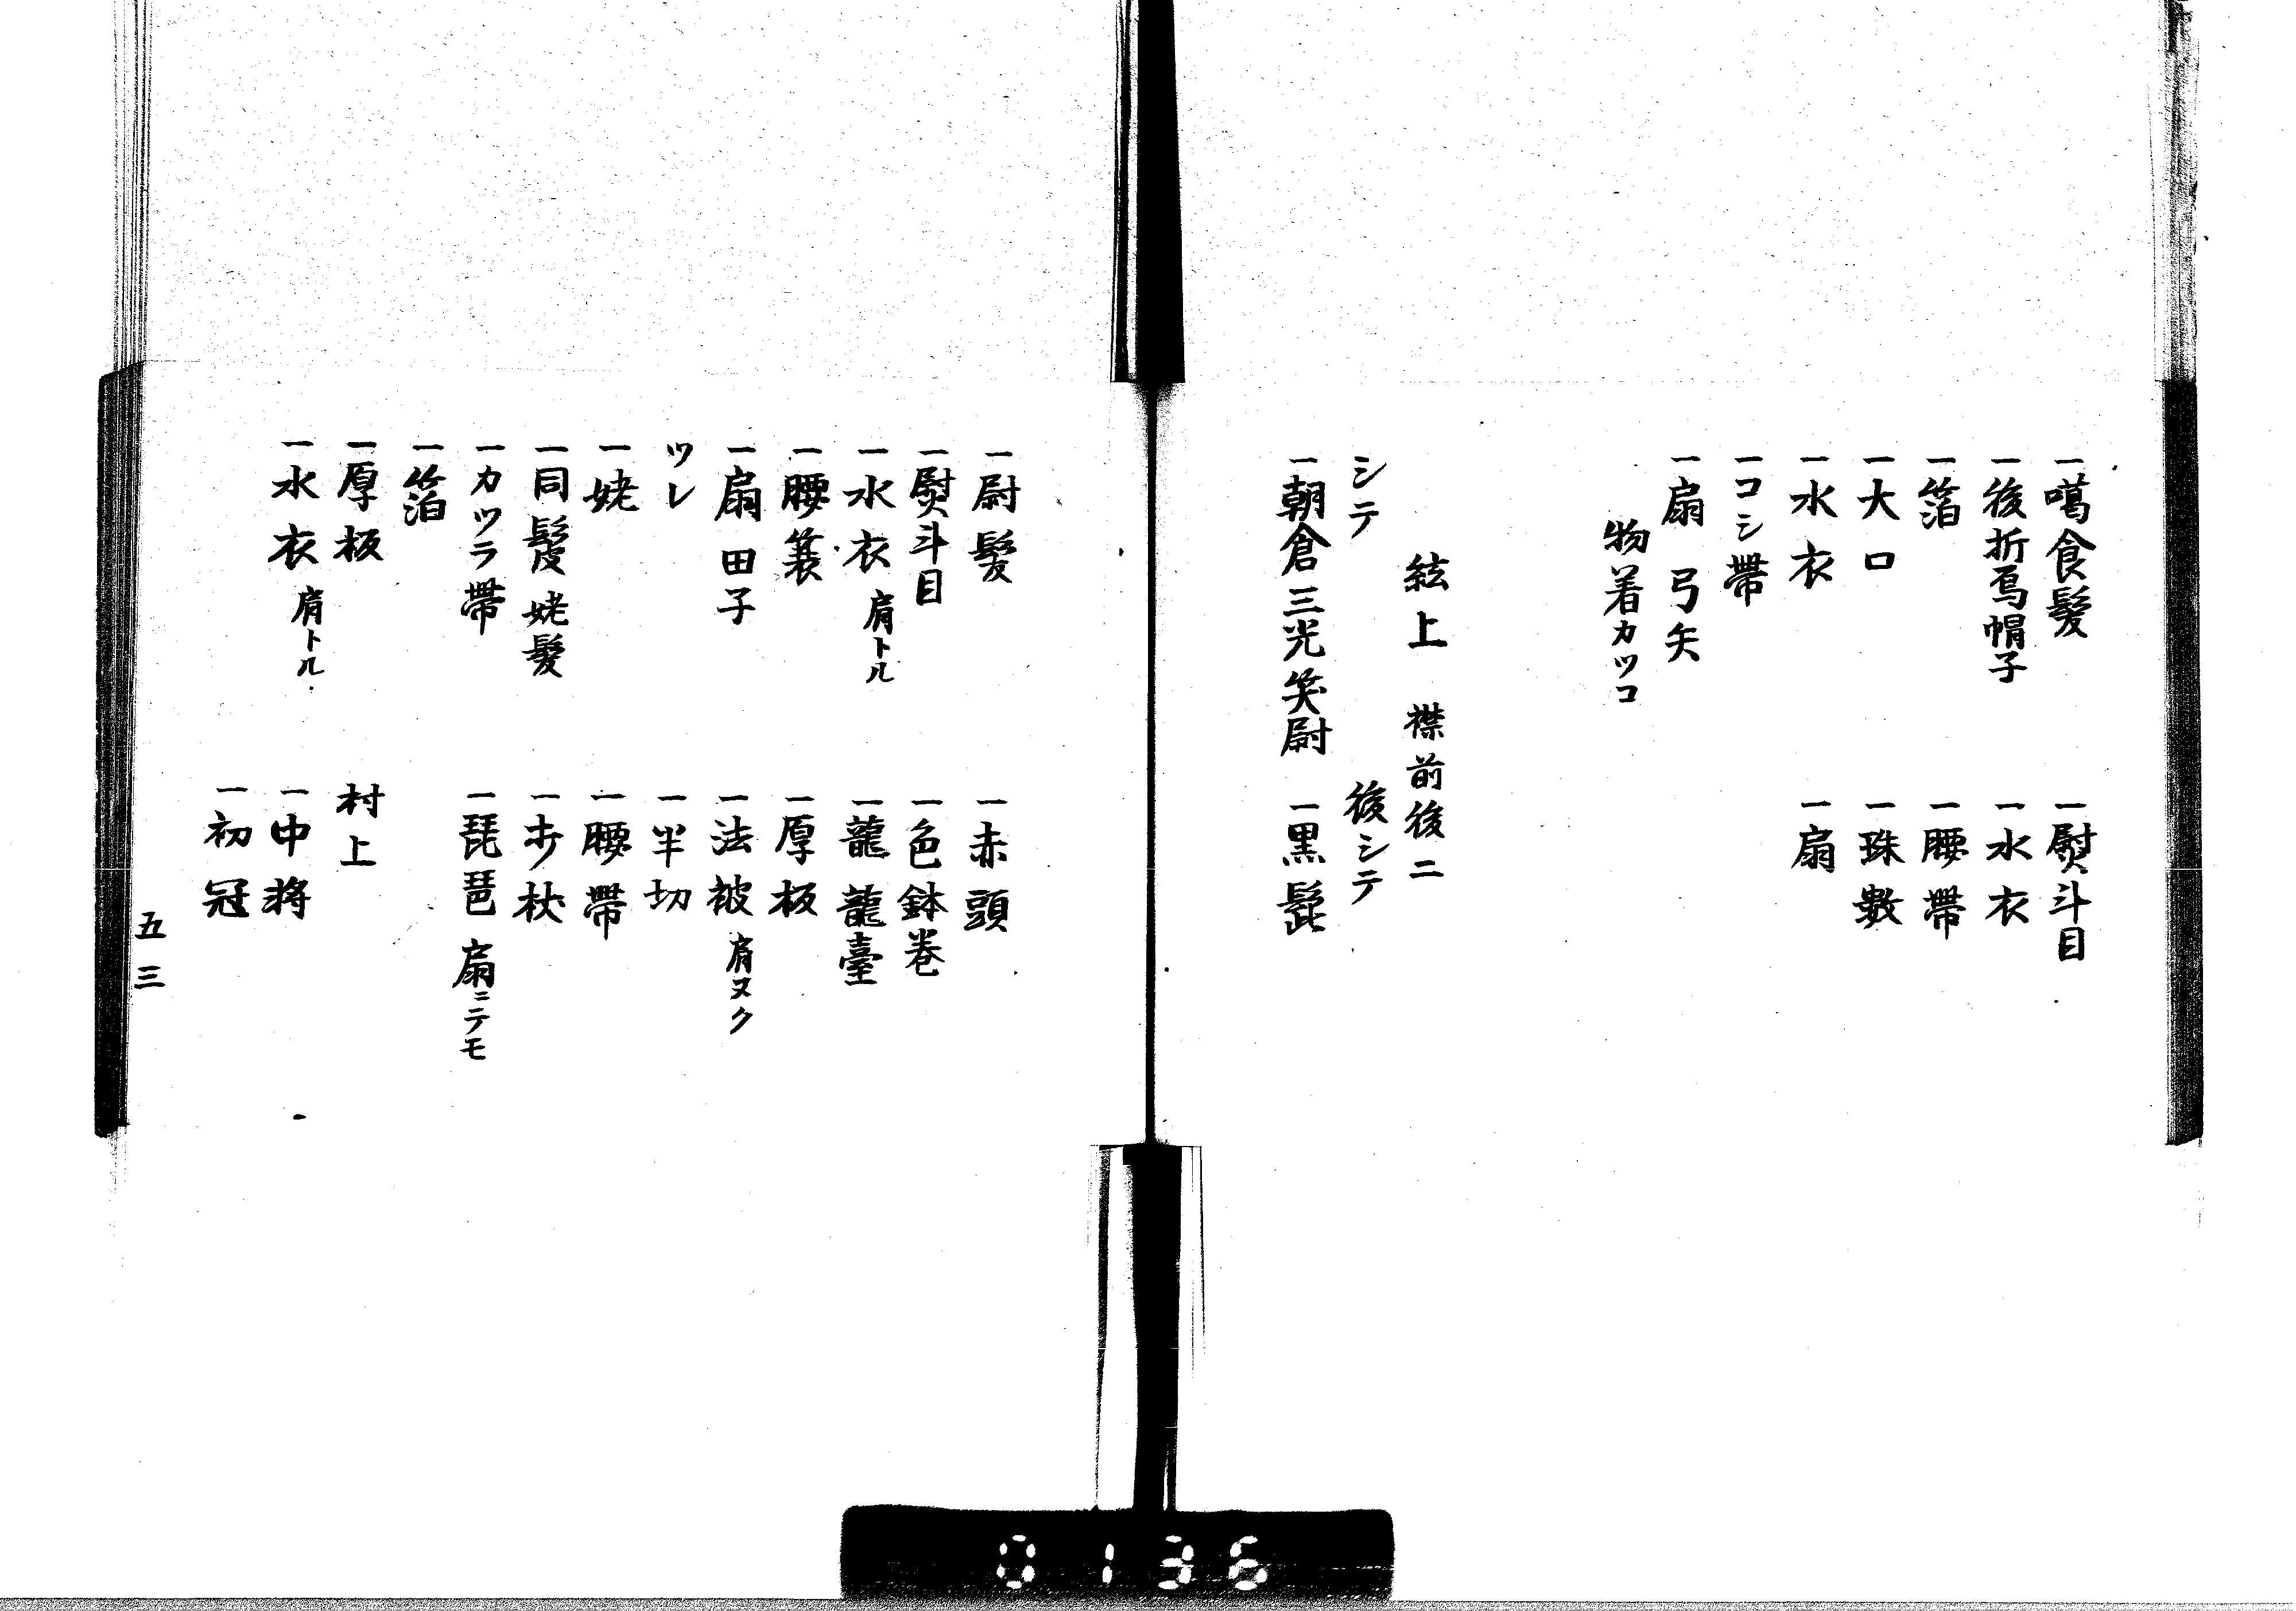 一喝食髪　一熨斗目
一後折烏帽子　一水衣
一箔　一腰帶
一大口　一珠數
一水衣　一扇
一コシ帶
一扇　弓矢
物着カツコ
絃上　襟前後二
シテ　後シテ
一朝倉三光笑尉　一黒髭
一尉髪　一赤頭
一熨斗目　一色鉢巻
一水衣肩トル　一龍龍臺
一腰簑　一厚板
一扇田子　一法被肩ヌク
ツレ　一半切
一姥　一腰帶
一同鬘姥髪　一杖
一カツラ帶　一琵琶扇ニテモ
一箔
一厚板　村上
一水衣肩トル　一中将
一初冠
五三
0136